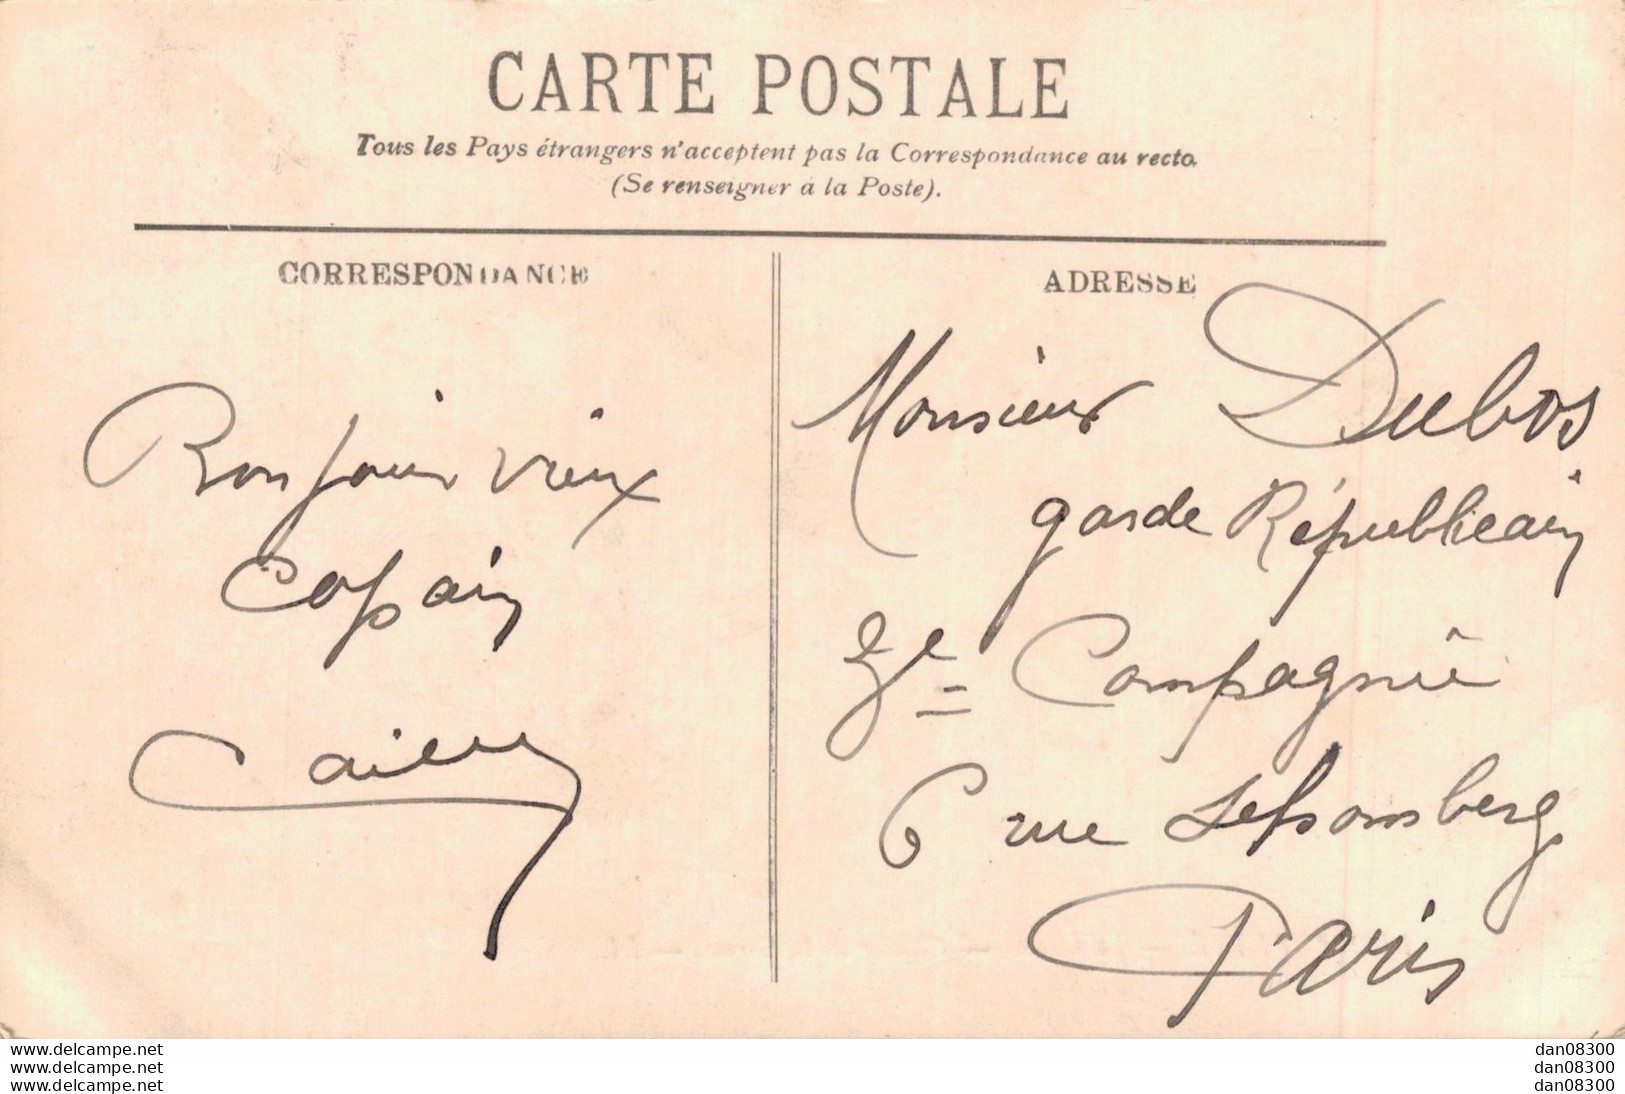 CARTE POSTALE
Tous les Pays étrangers n'acceptent pas la Correspondance au recto.
(Se renseigner à la Poste).
CORRESPONDANCE
Bonjour vieux
Copain
ADRESSE
Monsieur Dubos
garde Républicain
Compagnie
6 rue Schomberg
Paris
www.delcampe.net
www.delcampe.net
www.delcampe.net
dan08300
dan08300
dan08300